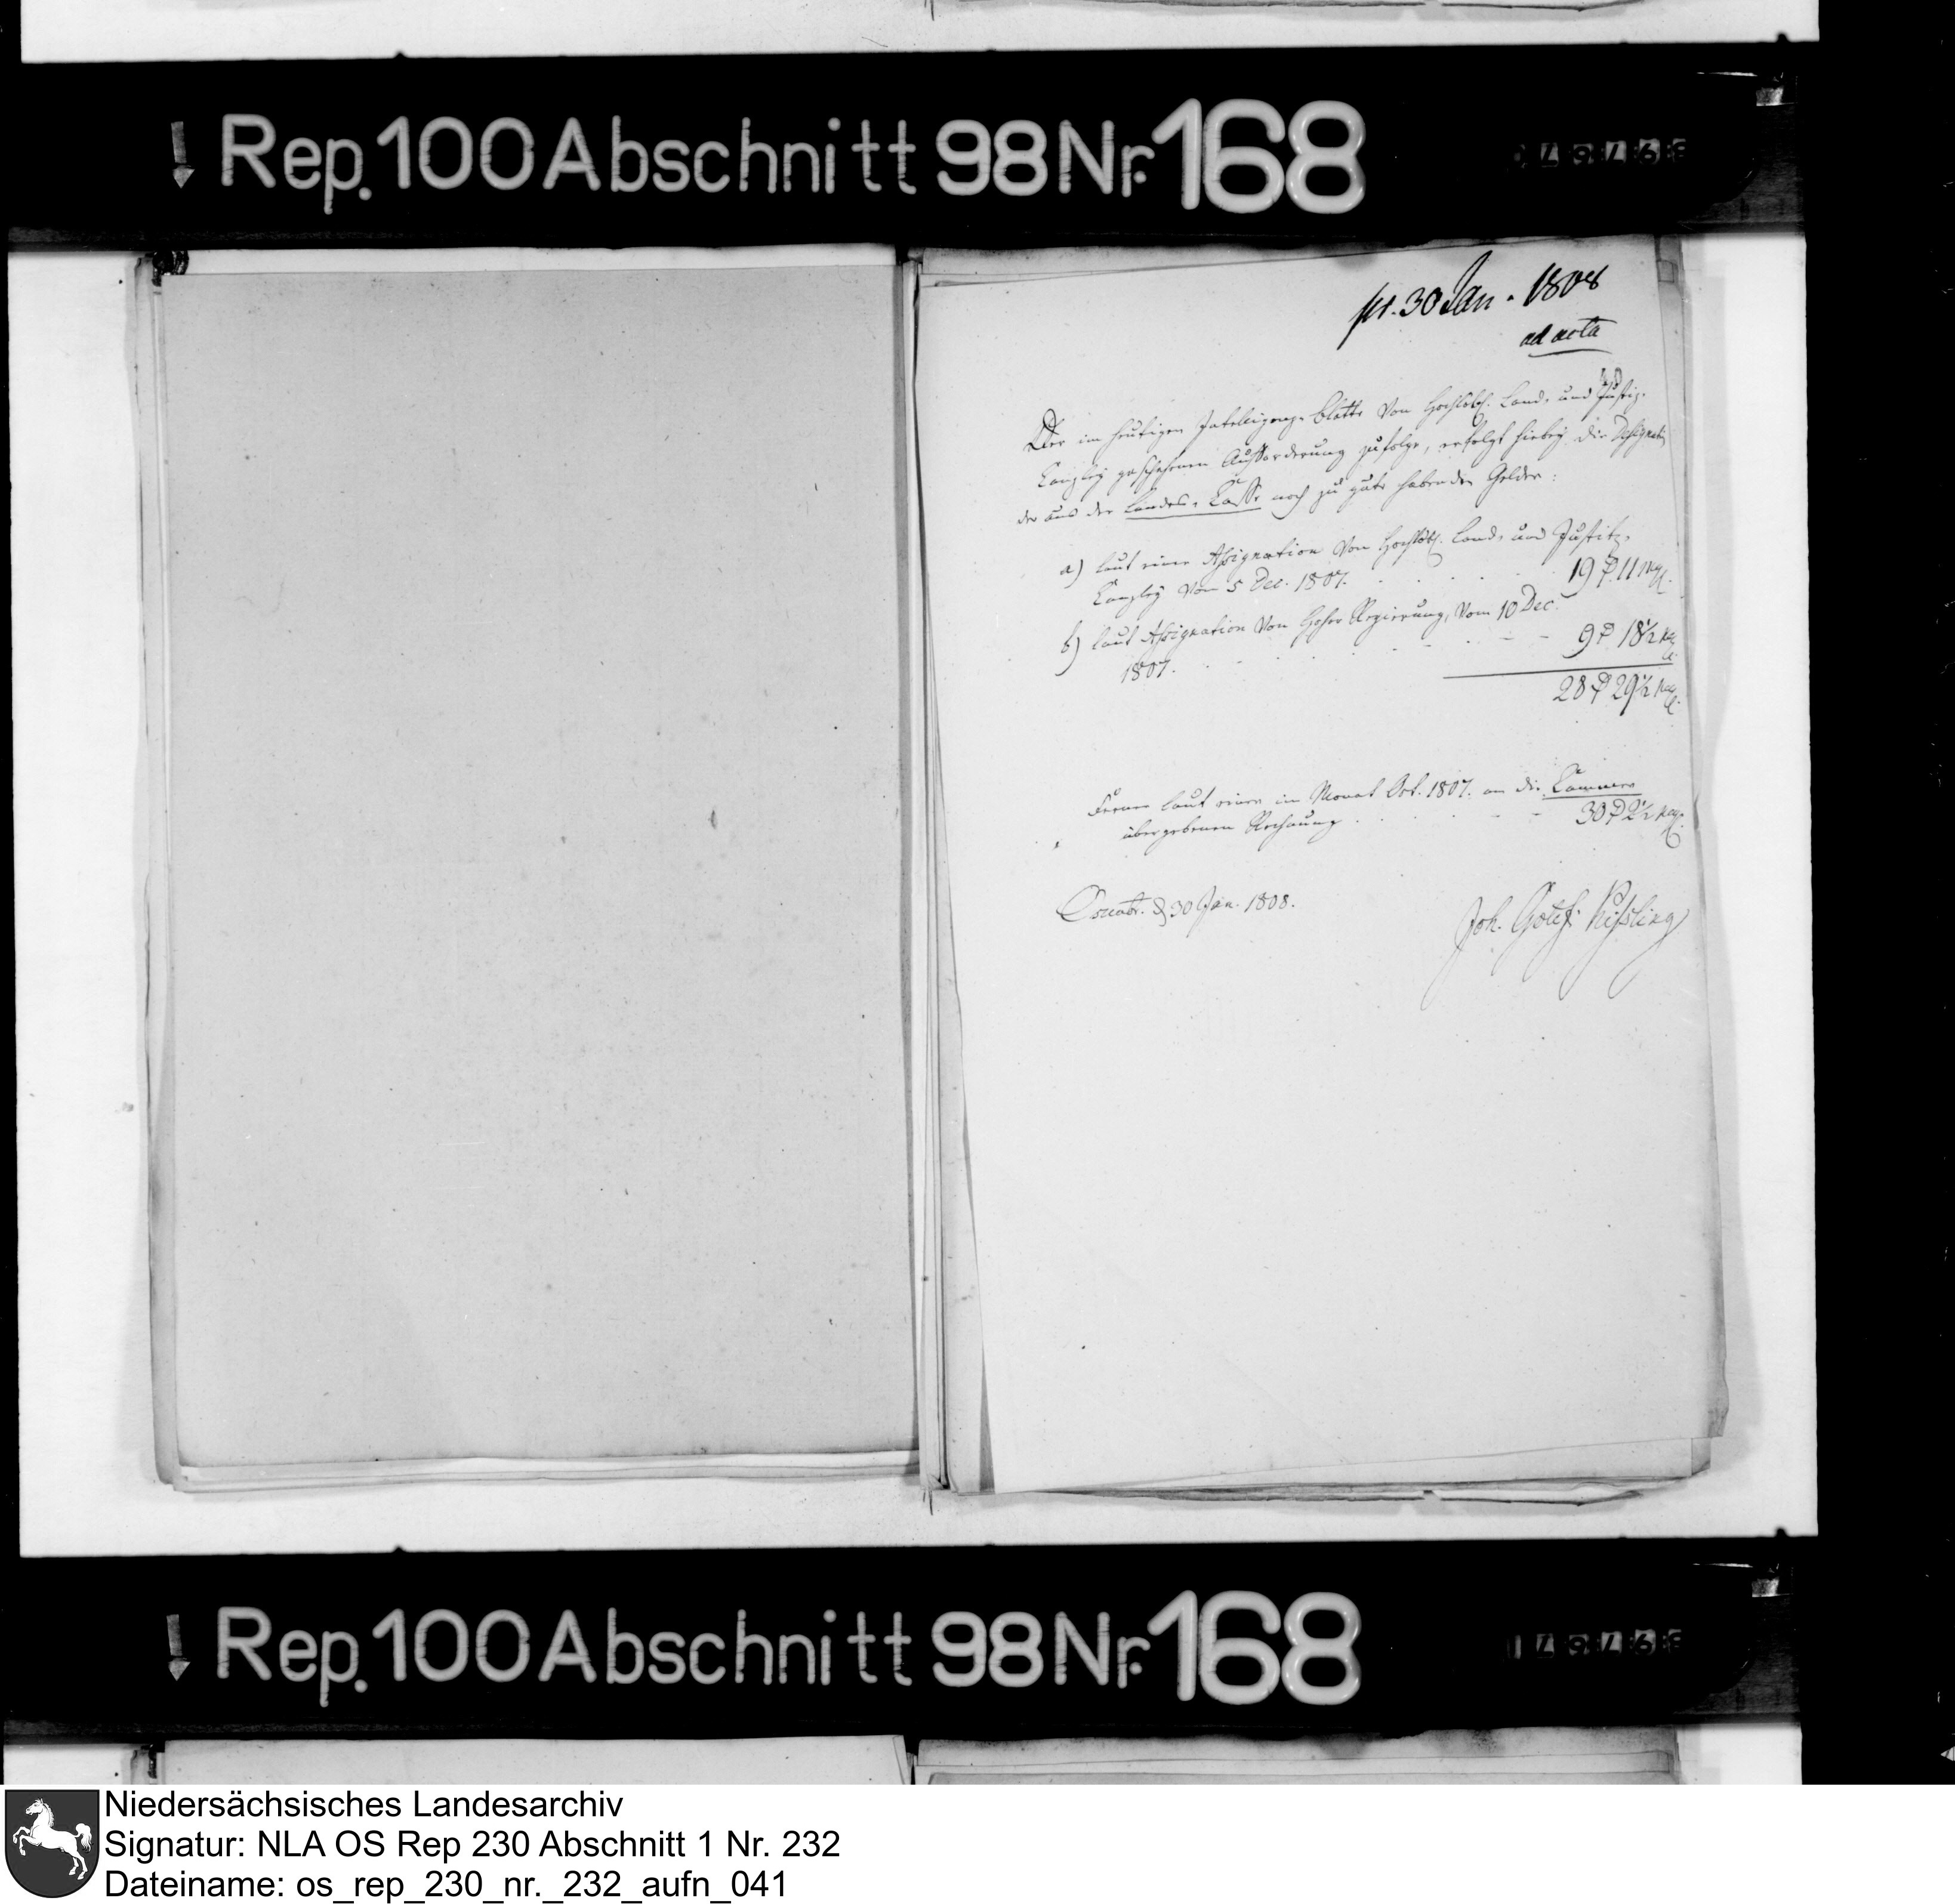 Rep. 100 Abschnitt 98 Nr. 168
pr. 30 Jan. 1808
ad acta
Der im heutigen Intelligenz-Blatte von Hochlöbl. Land- und Justiz-
Canzley geschehenen Aufforderung zufolge, erfolgt hiebey die Designation
der aus der Landes-Casse noch zu gute habenden Gelder:
a) laut einer Assignation von Hochlöbl. Land- und Justitz-
Canzley vom 5 Dec. 1807. 19 11
b) laut Assignation von Hoher Regierung, vom 10 Dec.
1807. 9 18 1/2
28 29 1/2
Ferner laut einer im Monat Oct. 1807. an die Cammer
übergebenen Rechnung 30 2 1/2
Osnabr. d 30 Jan. 1808.
Joh. Gottf. Kissling
Rep. 100 Abschnitt 98 Nr. 168
Niedersächsisches Landesarchiv
Signatur: NLA OS Rep 230 Abschnitt 1 Nr. 232
Dateiname: os_rep_230_nr._232_aufn_041